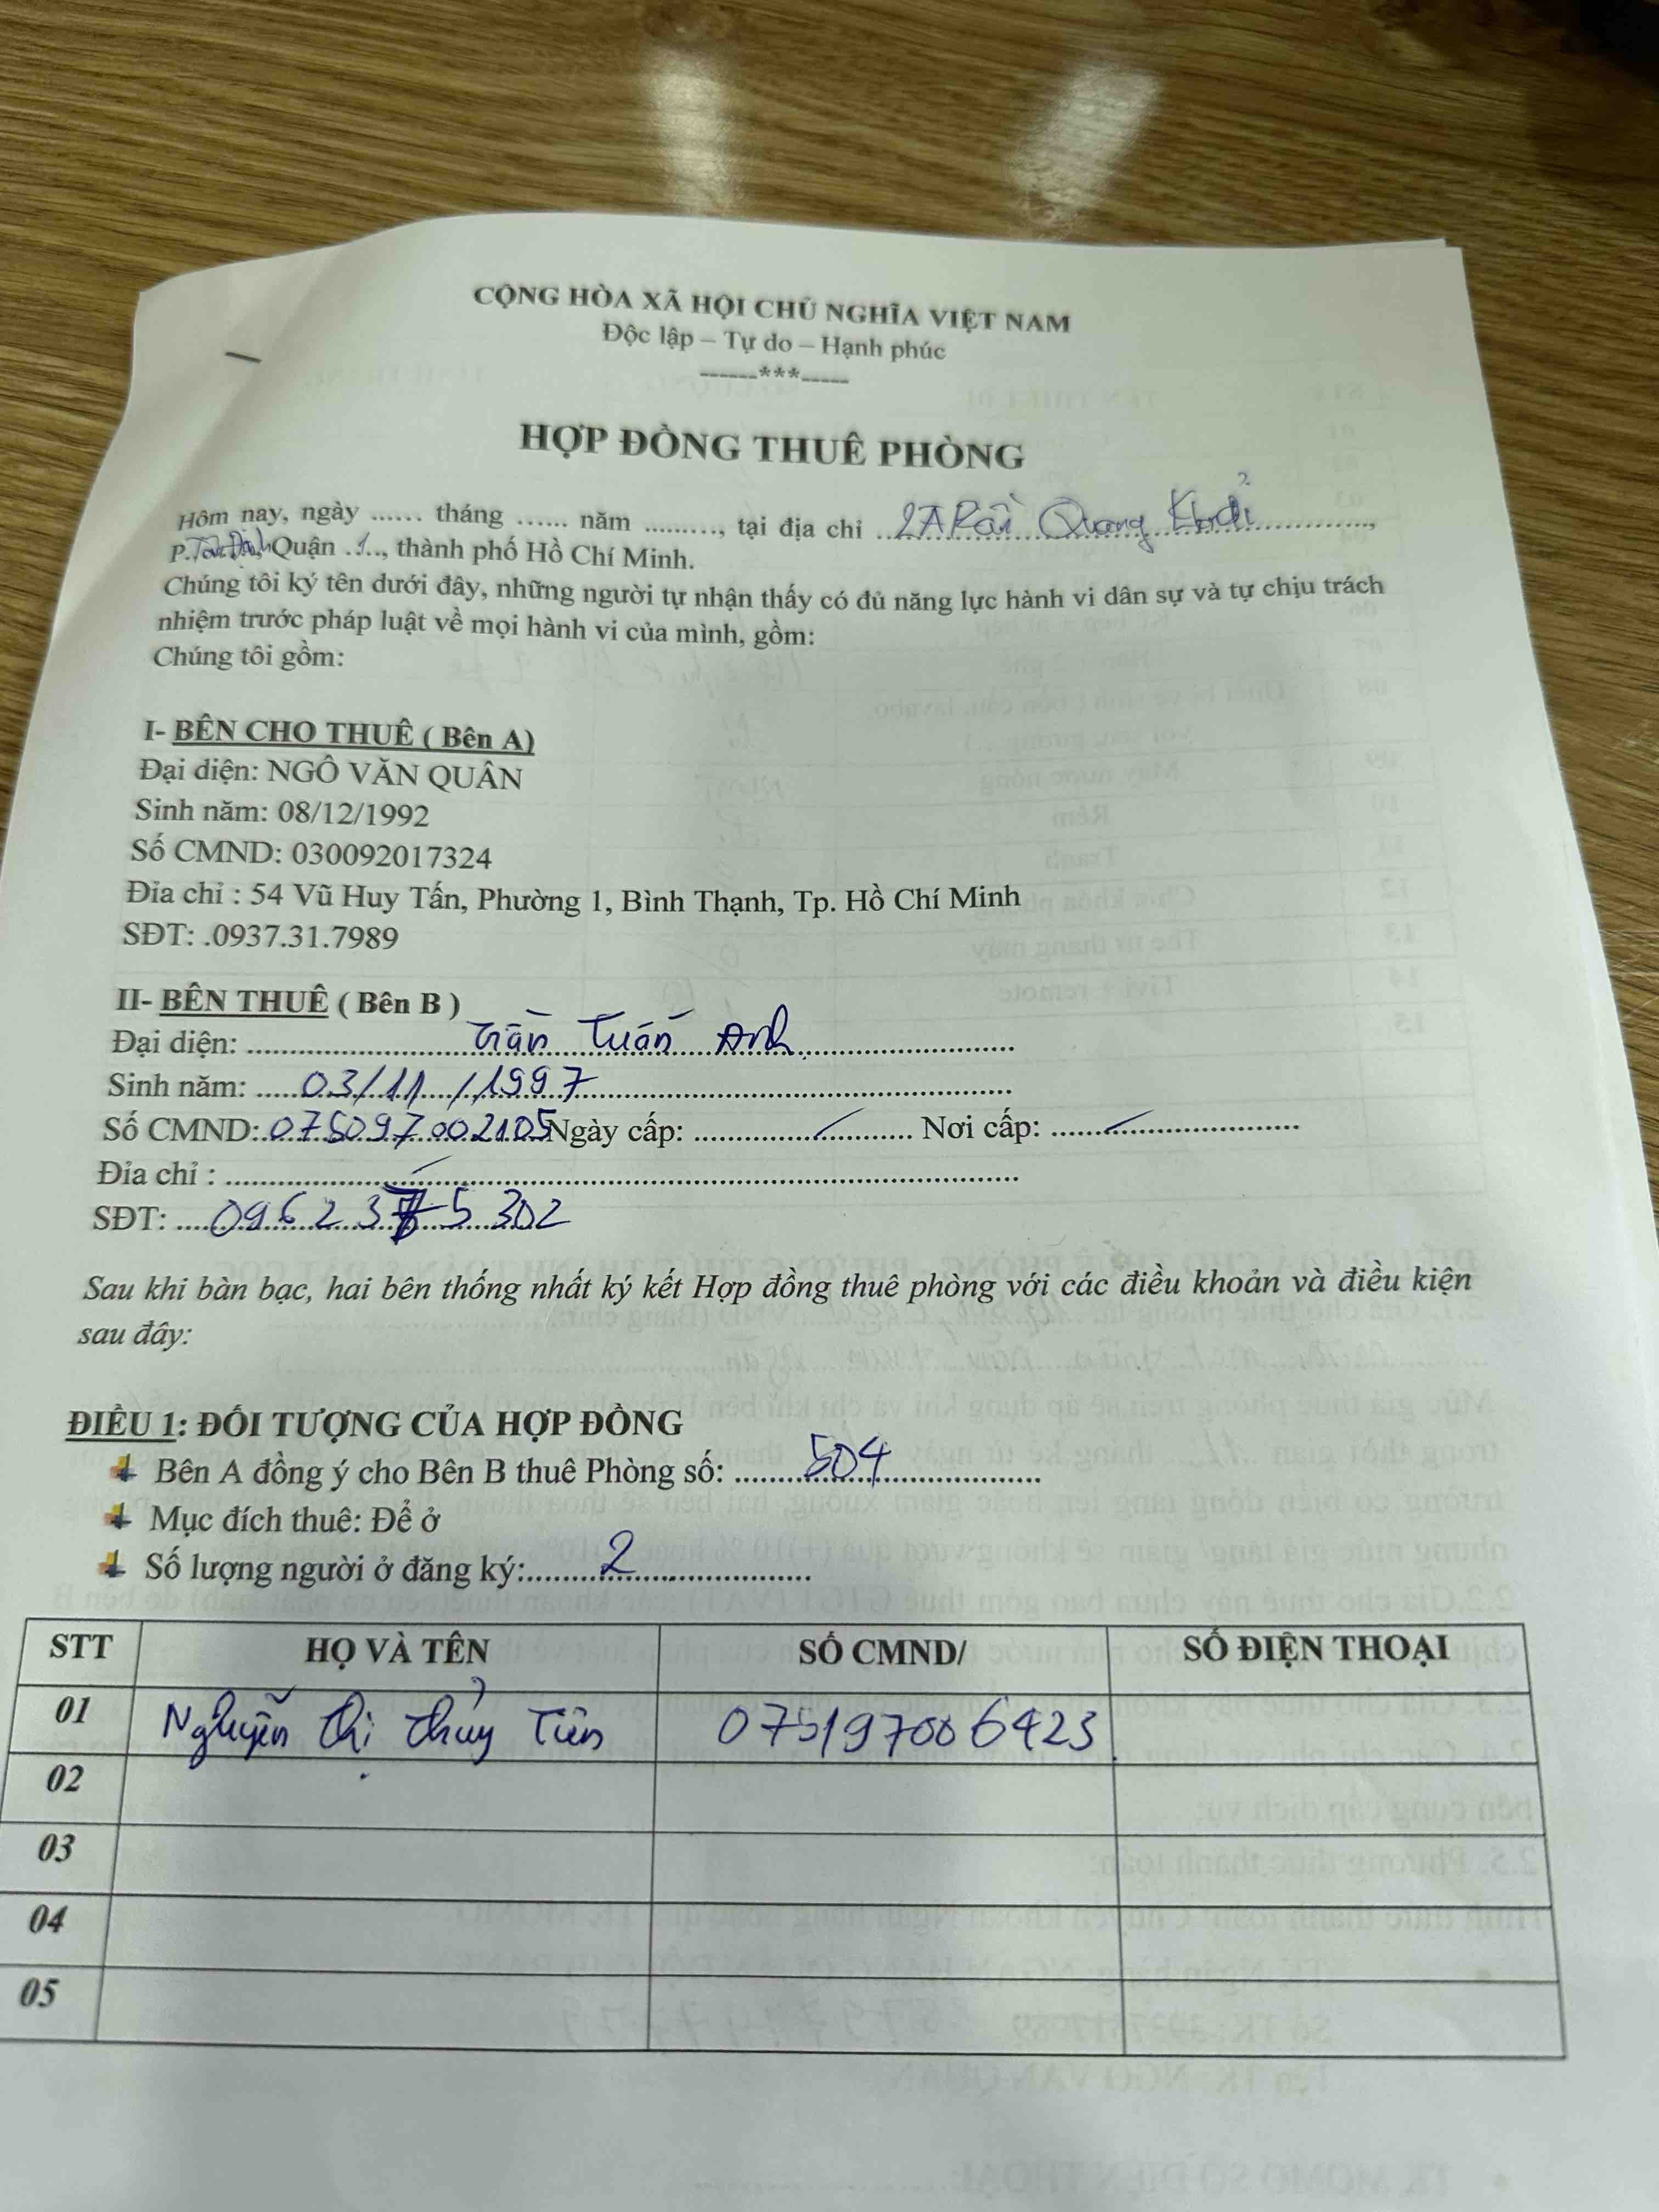 CỘNG HÒA XÃ HỘI CHỦ NGHĨA VIỆT NAM
Độc lập – Tự do – Hạnh phúc
------***-----
HỢP ĐỒNG THUÊ PHÒNG
Hôm nay, ngày ...... tháng ...... năm ........., tại địa chỉ ..2A Trần Quang Khải..............,
P.Tân Định Quận ..1.., thành phố Hồ Chí Minh.
Chúng tôi ký tên dưới đây, những người tự nhận thấy có đủ năng lực hành vi dân sự và tự chịu trách
nhiệm trước pháp luật về mọi hành vi của mình, gồm:
Chúng tôi gồm:
I- BÊN CHO THUÊ ( Bên A)
Đại diện: NGÔ VĂN QUÂN
Sinh năm: 08/12/1992
Số CMND: 030092017324
Đia chỉ : 54 Vũ Huy Tấn, Phường 1, Bình Thạnh, Tp. Hồ Chí Minh
SĐT: .0937.31.7989
II- BÊN THUÊ ( Bên B )
Đại diện: Trần Tuấn Anh
Sinh năm: 03/11/1997
Số CMND: 075097002105 Ngày cấp: ........../............ Nơi cấp: ....../..................
Đia chỉ : ......................................................
SĐT: 0962375302
Sau khi bàn bạc, hai bên thống nhất ký kết Hợp đồng thuê phòng với các điều khoản và điều kiện
sau đây:
ĐIỀU 1: ĐỐI TƯỢNG CỦA HỢP ĐỒNG
Bên A đồng ý cho Bên B thuê Phòng số: ........504..................
Mục đích thuê: Để ở
Số lượng người ở đăng ký:........2......................
STT HỌ VÀ TÊN SỐ CMND/ SỐ ĐIỆN THOẠI
01 Nguyễn Thị Thủy Tiên 075197006423
02
03
04
05